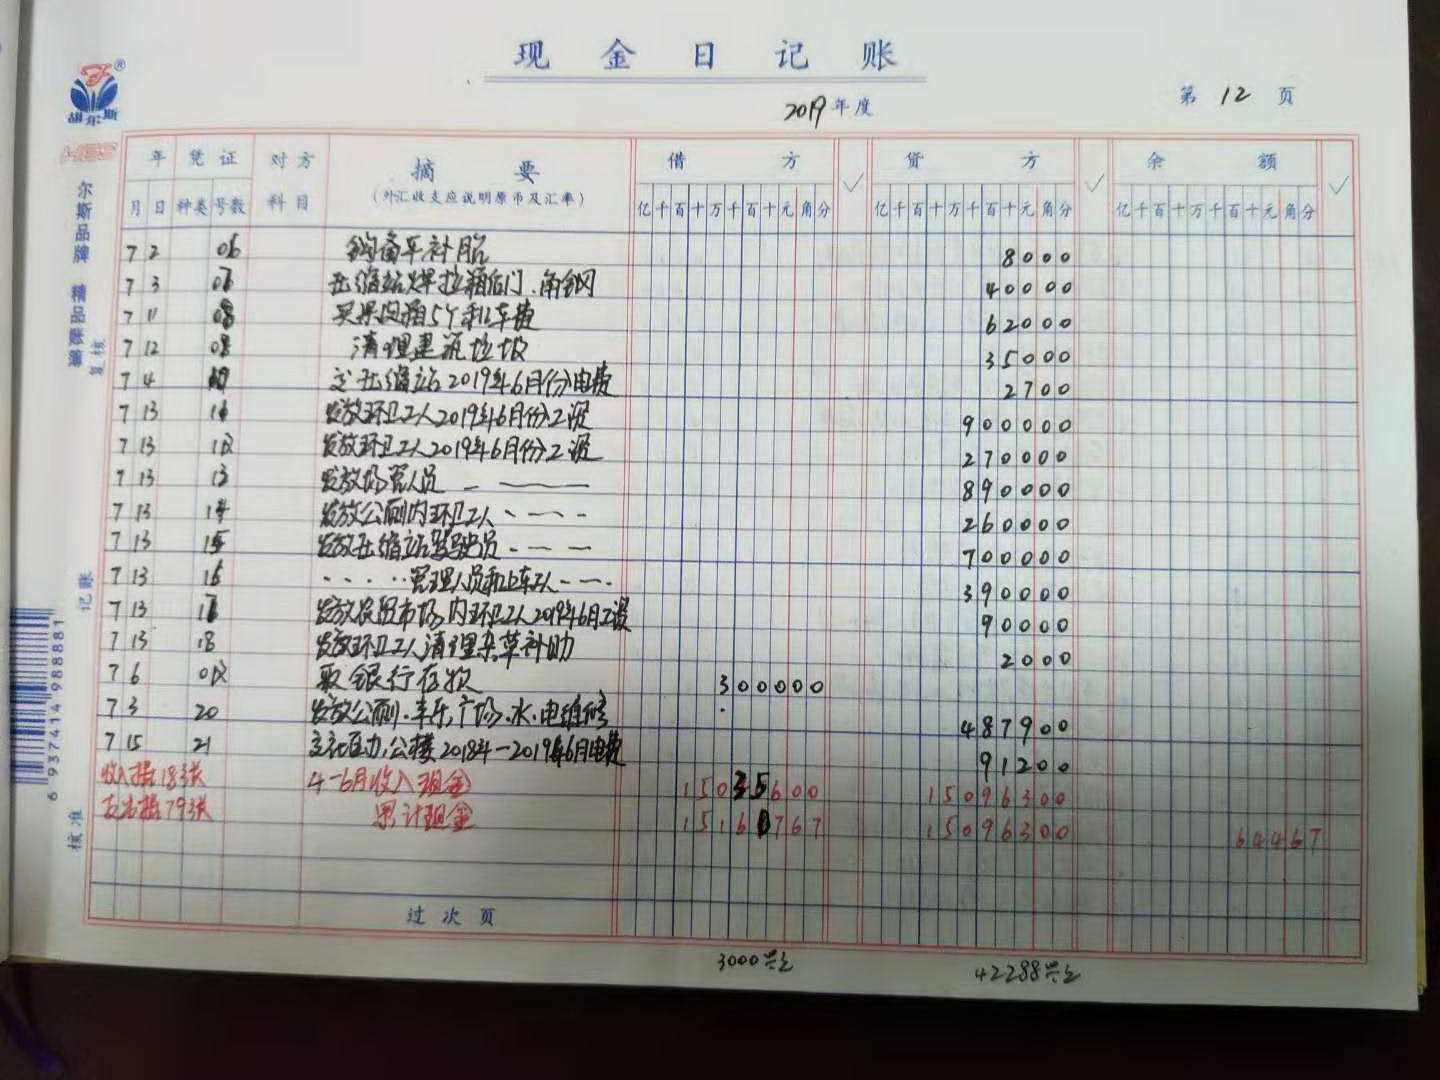 现金日记账
2019年度
第 12 页
胡尔斯
尔斯品牌 精品账簿
年 凭证 对方 摘要 借方 ✓ 贷方 ✓ 余额 ✓
月 日 种类 号数 科目 (外汇收支应说明原币及汇率) 亿千百十万千百十元角分 亿千百十万千百十元角分 亿千百十万千百十元角分
7 2 06 补胎 8000
7 3 压缩站焊垃圾箱后门.角钢 40000
7 11 08 5个和车费 62000
7 12 清理建筑垃圾 35000
7 4 压缩站2019年6月份电费 2700
7 13 发放环卫工人2019年6月份工资 900000
7 13 12 发放环卫工人2019年6月份工资 270000
7 13 13 发放场管人员 890000
7 13 14 发放公厕内环卫工人 260000
7 13 15 发放压缩站驾驶员 700000
7 13 16 管理人员和上车工人 390000
7 13 发放农贸市场内环卫工人2019年6月工资 90000
7 13 18 发放环卫工人清理杂草补助 2000
7 6 取银行存款 300000
7 3 20 发放公厕.车乐.广场.水.电维修 487900
7 15 21 社区办公楼2018年—2019年6月电费 91200
收入据183张 4-6月收入现金 15035600 15096300
支出据79张 累计现金 767 15096300 64467
过次页
3000 42288
复核
记账
核准
6 937414 988881